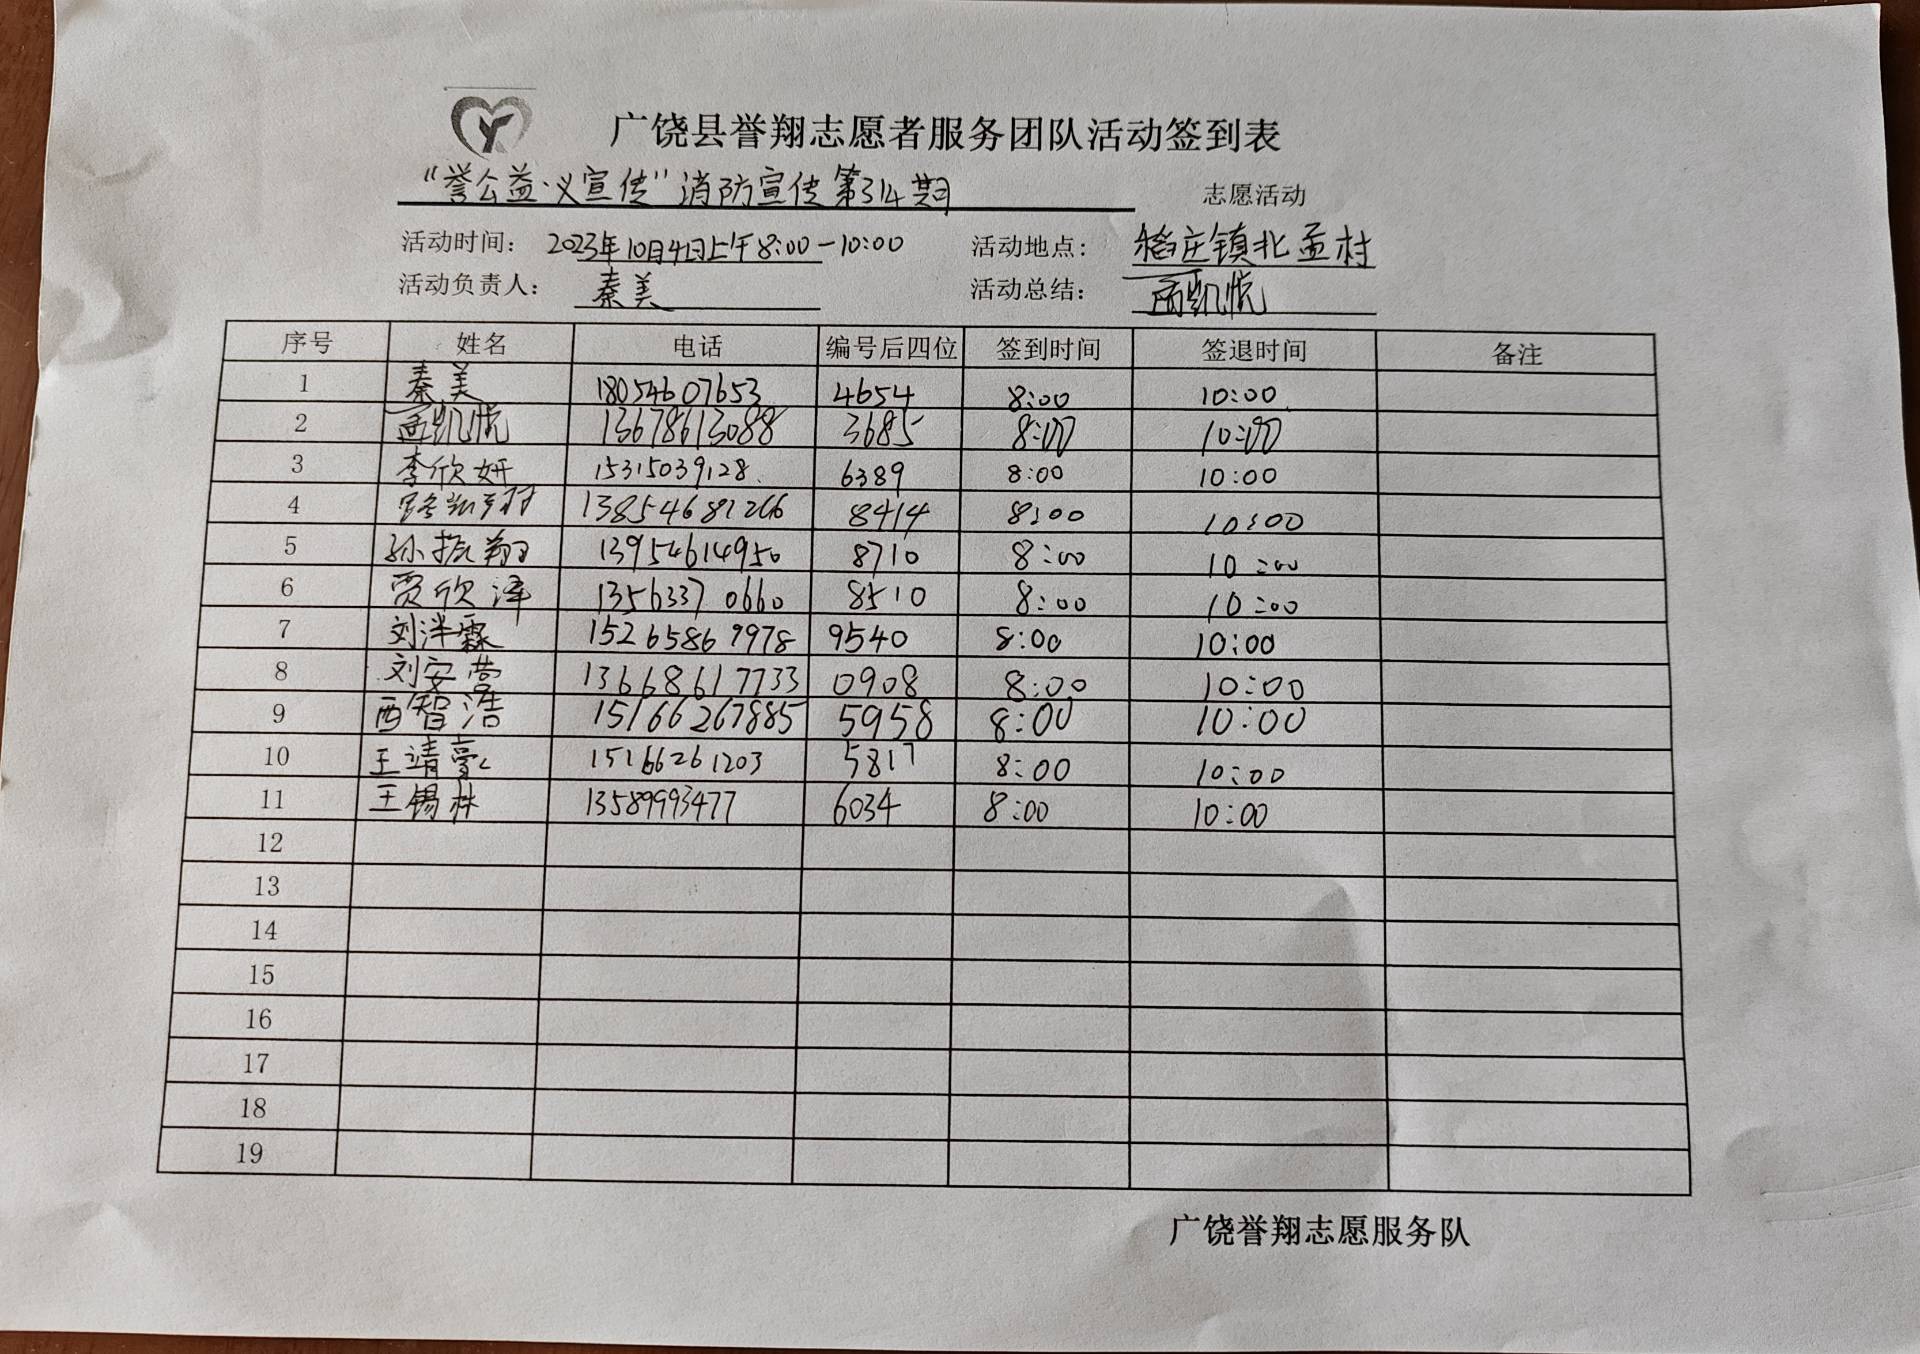 广饶县誉翔志愿者服务团队活动签到表
“誉公益·义宣传”消防宣传第314期 志愿活动
活动时间： 2023年10月4日上午8:00-10:00 活动地点： 稻庄镇北孟村
活动负责人： 秦美 活动总结： 凯悦
序号 姓名 电话 编号后四位 签到时间 签退时间 备注
1 秦美 18054607653 4654 8:00 10:00
2 凯悦 13678613088 3685 8:00 10:00
3 李欣妍 15315039128 6389 8:00 10:00
4 8414 8:00 10:00
5 孙振翔 13954614950 8710 8:00 10:00
6 贾欣泽 13563370660 8510 8:00 10:00
7 刘洋霖 15265869978 9540 8:00 10:00
8 刘安营 13668617733 0908 8:00 10:00
9 西智浩 15166267885 5958 8:00 10:00
10 王靖豪 15166261203 5817 8:00 10:00
11 王锡林 13589993477 6034 8:00 10:00
12
13
14
15
16
17
18
19
广饶誉翔志愿服务队